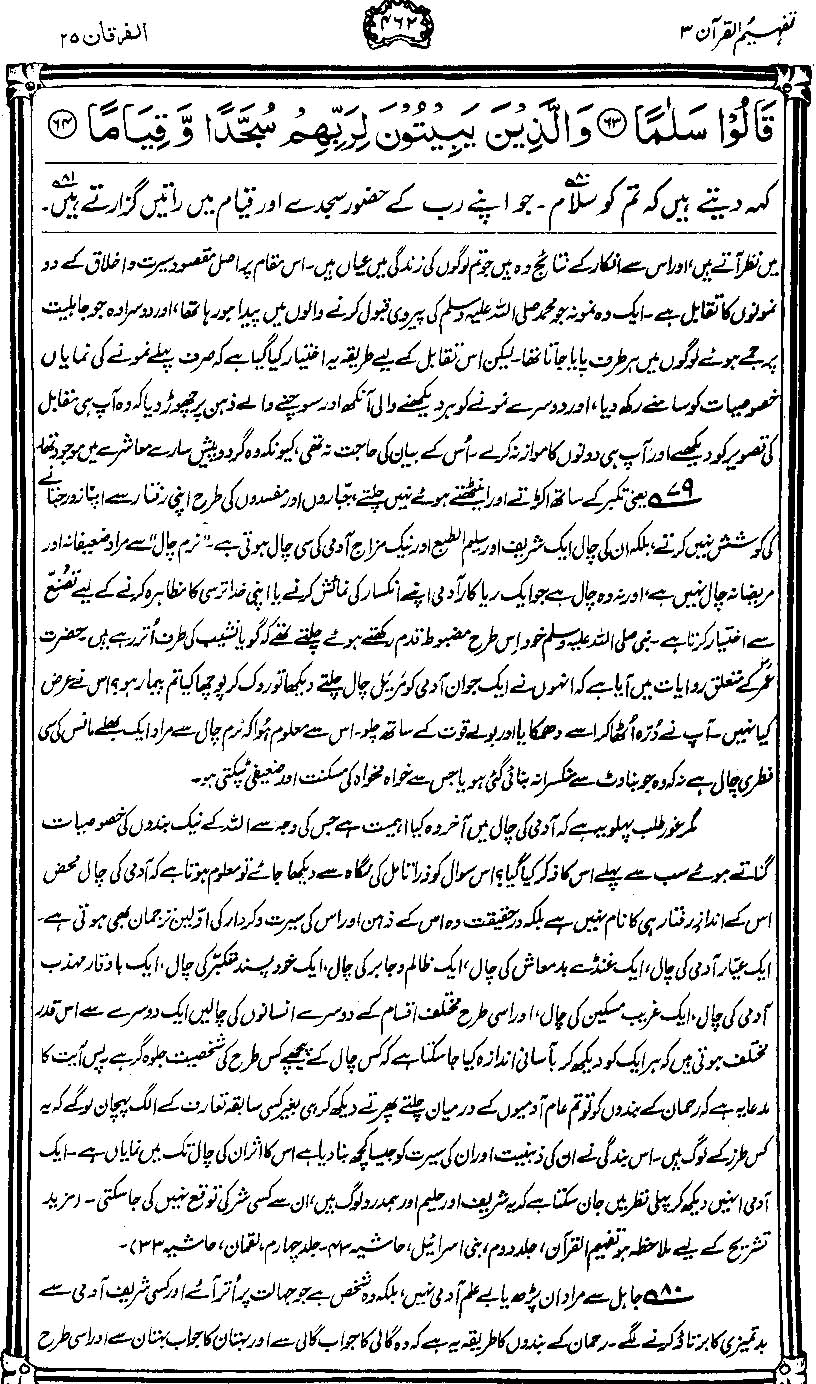 تفہیم القرآن ۳
۴۶۲
الفرقان ۲۵
قَالُوْا سَلٰمًا ﴿۶۳﴾ وَالَّذِيْنَ يَبِيْتُوْنَ لِرَبِّهِمْ سُجَّدًا وَّ قِيَامًا ﴿۶۴﴾
کہہ دیتے ہیں کہ تم کو سلام۸۰۔ جو اپنے رب کے حضور سجدے اور قیام میں راتیں گزارتے ہیں۸۱۔
میں نظر آتے ہیں، اور اس سے انکار کے نتائج وہ ہیں جو تم لوگوں کی زندگی میں عیاں ہیں۔ اس مقام پر اصل مقصود سیرت و اخلاق کے دو
نمونوں کا تقابل ہے۔ ایک وہ نمونہ جو محمد صلی اللہ علیہ وسلم کی پیروی قبول کرنے والوں میں پیدا ہو رہا تھا، اور دوسرا وہ جو جاہلیت
پر جمے ہوئے لوگوں میں ہر طرف پایا جاتا تھا۔ لیکن اس تقابل کے لیے طریقہ یہ اختیار کیا گیا ہے کہ صرف پہلے نمونے کی نمایاں
خصوصیات کو سامنے رکھ دیا، اور دوسرے نمونے کو ہر دیکھنے والی آنکھ اور سوچنے والے ذہن پر چھوڑ دیا کہ وہ آپ ہی مقابل
کی تصویر کو دیکھے اور آپ ہی دونوں کا موازنہ کرے۔ اُس کے بیان کی حاجت نہ تھی، کیونکہ وہ گردوپیش سارے معاشرے میں موجود تھا۔
۷۹ یعنی تکبر کے ساتھ اکڑتے اور اینٹھتے ہوئے نہیں چلتے، جباروں اور مفسدوں کی طرح اپنی رفتار سے اپنا زور جتانے
کی کوشش نہیں کرتے، بلکہ ان کی چال ایک شریف اور سلیم الطبع اور نیک مزاج آدمی کی سی چال ہوتی ہے۔ "نرم چال" سے مراد ضعیفانہ اور
مریضانہ چال نہیں ہے، اور نہ وہ چال ہے جو ایک ریاکار آدمی اپنے انکسار کی نمائش کرنے یا اپنی خدا ترسی کا مظاہرہ کرنے کے لیے تصنع
سے اختیار کرتا ہے۔ نبی صلی اللہ علیہ وسلم خود اس طرح مضبوط قدم رکھتے ہوئے چلتے تھے کہ گویا نشیب کی طرف اُتر رہے ہیں۔ حضرت
عمرؓ کے متعلق روایات میں آیا ہے کہ انہوں نے ایک جوان آدمی کو مریل چال چلتے دیکھا تو روک کر پوچھا کیا تم بیمار ہو؟ اس نے عرض
کیا نہیں۔ آپ نے دُرّہ اُٹھا کر اسے دھمکایا اور بولے قوت کے ساتھ چلو۔ اس سے معلوم ہُوا کہ نرم چال سے مراد ایک بھلے مانس کی سی
فطری چال ہے نہ کہ وہ جو بناوٹ سے منکسرانہ بنائی گئی ہو یا جس سے خواہ مخواہ کی مسکنت اور ضعیفی ٹپکتی ہو۔
مگر غور طلب پہلو یہ ہے کہ آدمی کی چال میں آخر وہ کیا اہمیت ہے جس کی وجہ سے اللہ کے نیک بندوں کی خصوصیات
گناتے ہوئے سب سے پہلے اس کا ذکر کیا گیا؟ اس سوال کو ذرا تامل کی نگاہ سے دیکھا جائے تو معلوم ہوتا ہے کہ آدمی کی چال محض
اس کے اندازِ رفتار ہی کا نام نہیں ہے بلکہ درحقیقت وہ اس کے ذہن اور اس کی سیرت و کردار کی اوّلین ترجمان بھی ہوتی ہے۔
ایک عیّار آدمی کی چال، ایک غنڈے بدمعاش کی چال، ایک ظالم و جابر کی چال، ایک خود پسند متکبّر کی چال، ایک باوقار مہذب
آدمی کی چال، ایک غریب مسکین کی چال، اور اسی طرح مختلف اقسام کے دوسرے انسانوں کی چالیں ایک دوسرے سے اس قدر
مختلف ہوتی ہیں کہ ہر ایک کو دیکھ کر بآسانی اندازہ کیا جا سکتا ہے کہ کس چال کے پیچھے کس طرح کی شخصیت جلوہ گر ہے۔ پس آیت کا
مدعا یہ ہے کہ رحمان کے بندوں کو تو تم عام آدمیوں کے درمیان چلتے پھرتے دیکھ کر ہی بغیر کسی سابقہ تعارف کے الگ پہچان لو گے کہ یہ
کس طرز کے لوگ ہیں۔ اس بندگی نے ان کی ذہنیت اور ان کی سیرت کو جیسا کچھ بنا دیا ہے اس کا اثر ان کی چال تک میں نمایاں ہے۔ ایک
آدمی انہیں دیکھ کر پہلی نظر میں جان سکتا ہے کہ یہ شریف اور حلیم اور ہمدرد لوگ ہیں، ان سے کسی شر کی توقع نہیں کی جا سکتی۔ (مزید
تشریح کے لیے ملاحظہ ہو تفہیم القرآن، جلد دوم، بنی اسرائیل، حاشیہ ۴۳۔ جلد چہارم، لقمان، حاشیہ ۳۳)۔
۸۰ جاہل سے مراد ان پڑھ یا بے علم آدمی نہیں، بلکہ وہ شخص ہے جو جہالت پر اُتر آئے اور کسی شریف آدمی سے
بدتمیزی کا برتاؤ کرنے لگے۔ رحمان کے بندوں کا طریقہ یہ ہے کہ وہ گالی کا جواب گالی سے اور بہتان کا جواب بہتان سے اور اسی طرح